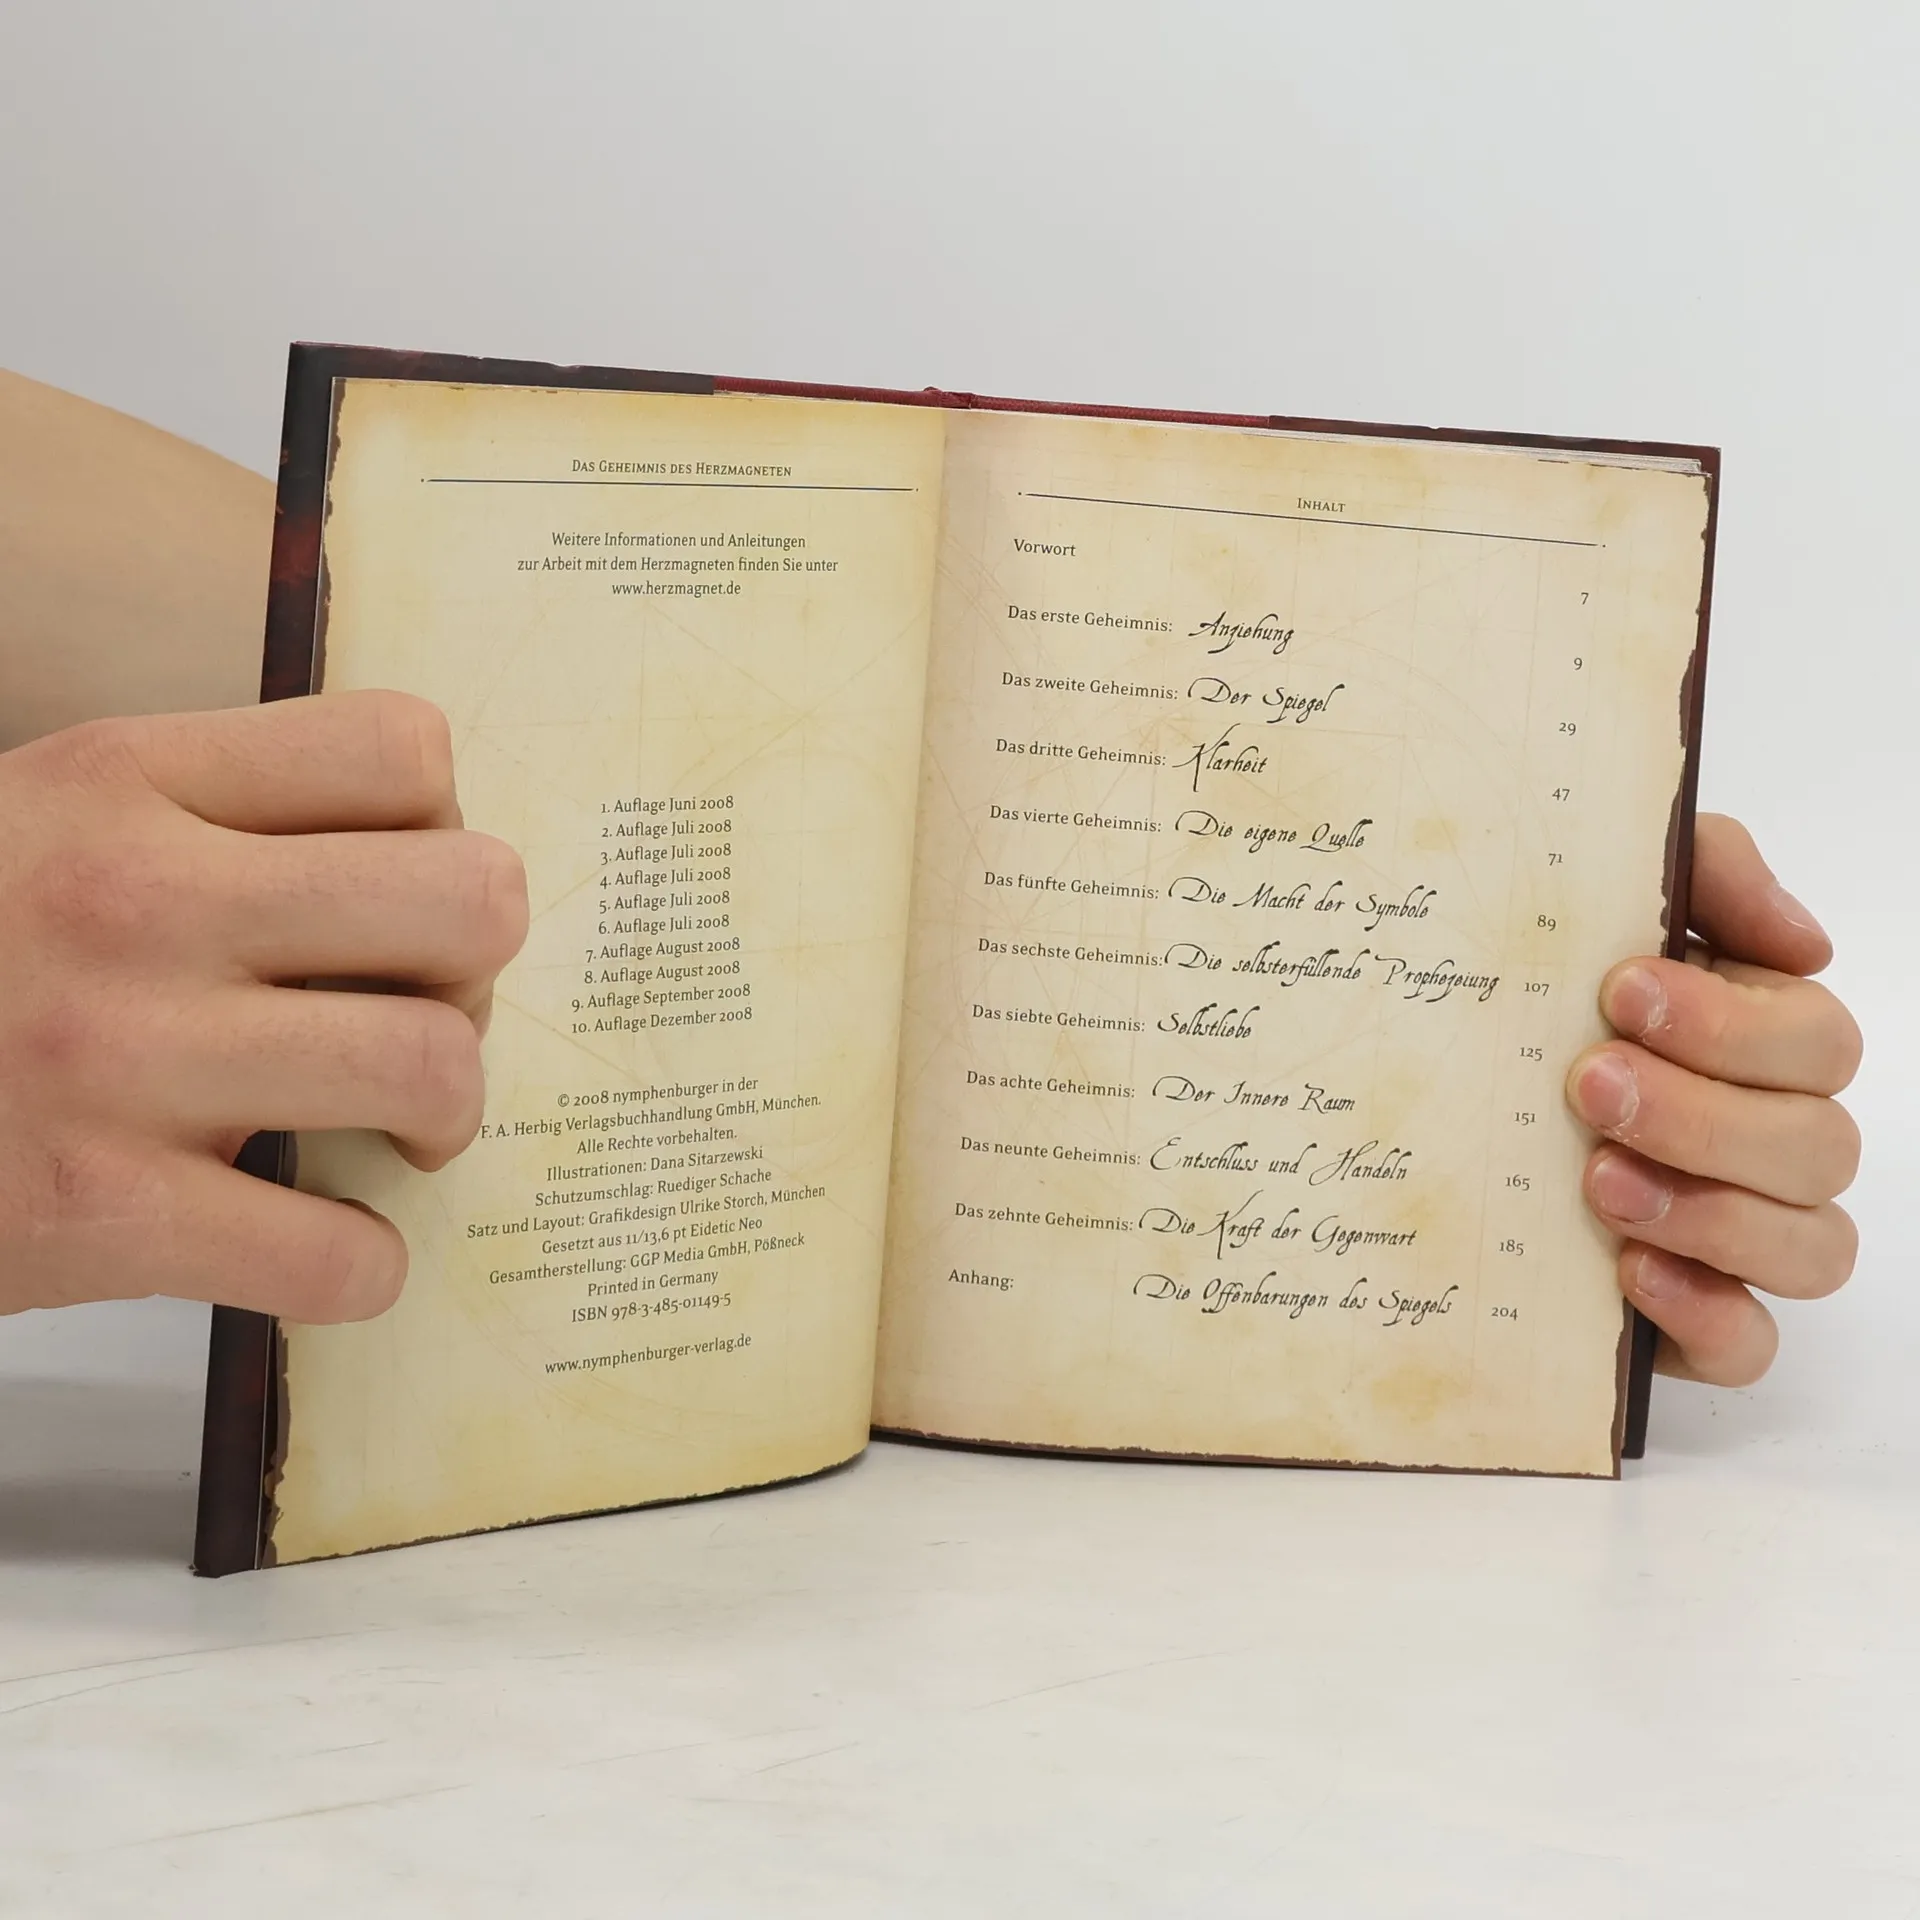 DAS GEHEIMNIS DES HERZMAGNETEN
Weitere Informationen und Anleitungen
zur Arbeit mit dem Herzmagneten finden Sie unter
www.herzmagnet.de
1. Auflage Juni 2008
2. Auflage Juli 2008
3. Auflage Juli 2008
4. Auflage Juli 2008
5. Auflage Juli 2008
6. Auflage Juli 2008
7. Auflage August 2008
8. Auflage August 2008
9. Auflage September 2008
10. Auflage Dezember 2008
© 2008 nymphenburger in der
F. A. Herbig Verlagsbuchhandlung GmbH, München.
Alle Rechte vorbehalten.
Illustrationen: Dana Sitarzewski
Schutzumschlag: Ruediger Schache
Satz und Layout: Grafikdesign Ulrike Storch, München
Gesetzt aus 11/13,6 pt Eidetic Neo
Gesamtherstellung: GGP Media GmbH, Pößneck
Printed in Germany
ISBN 978-3-485-01149-5
www.nymphenburger-verlag.de
INHALT
Vorwort 7
Das erste Geheimnis: Anziehung 9
Das zweite Geheimnis: Der Spiegel 29
Das dritte Geheimnis: Klarheit 47
Das vierte Geheimnis: Die eigene Quelle 71
Das fünfte Geheimnis: Die Macht der Symbole 89
Das sechste Geheimnis: Die selbsterfüllende Prophezeiung 107
Das siebte Geheimnis: Selbstliebe 125
Das achte Geheimnis: Der Innere Raum 151
Das neunte Geheimnis: Entschluss und Handeln 165
Das zehnte Geheimnis: Die Kraft der Gegenwart 185
Anhang: Die Offenbarungen des Spiegels 204